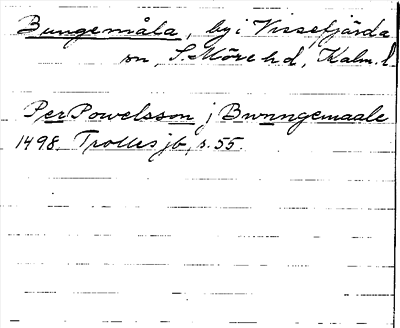 Bungemåla, by i Vissefjärda
sn, S. Möre hd, Kalm. l.
Per Powelsson j Bwnngemaale
1498. Trolles jb, s. 55.